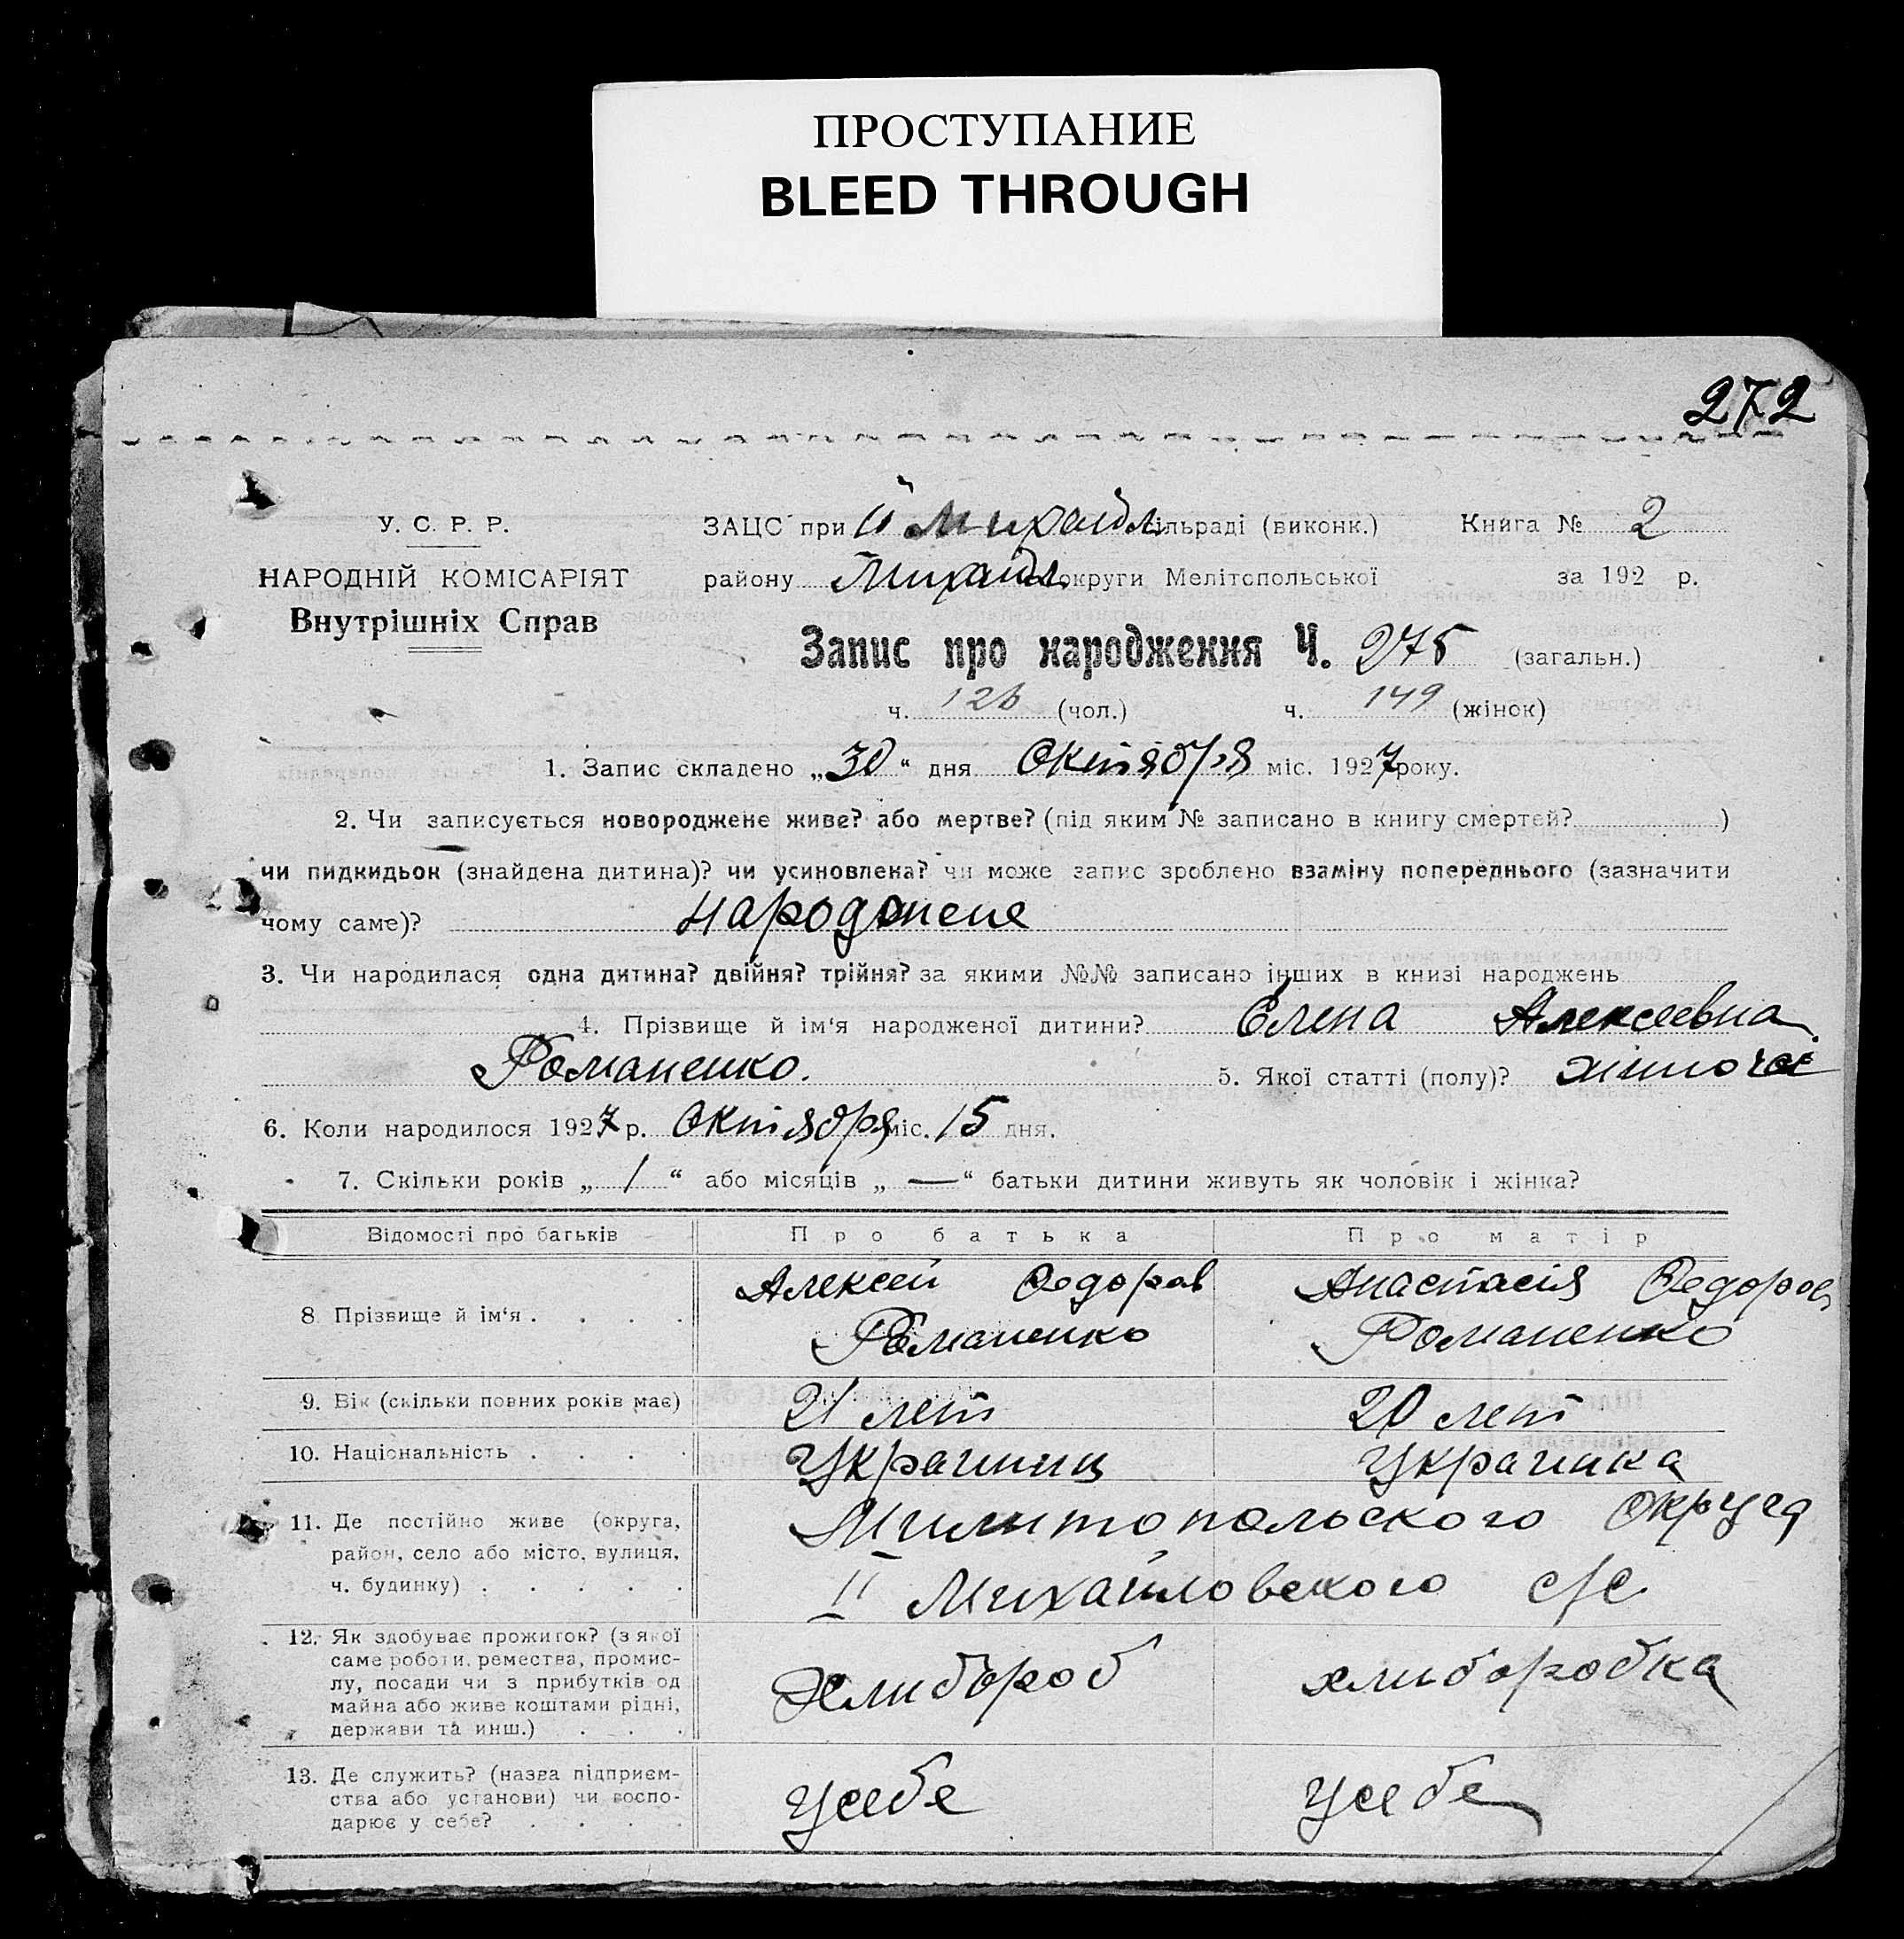 ПРОСТУПАНИЕ
BLEED THROUGH
272
У. С. Р. Р.
НАРОДНІЙ КОМІСАРІЯТ
Внутрішніх Справ
ЗАЦС при II Михайл. сільраді (виконк.) Книга № 2
району Михайл. округи Мелітопольської за 192 р.
Запис про народження Ч. 275 (загальн.)
ч. 126 (чол.) ч. 149 (жінок)
1. Запис складено „30“ дня Октября міс. 1927 року.
2. Чи записується новороджене живе? або мертве? (під яким № записано в книгу смертей? )
чи пидкидьок (знайдена дитина)? чи усиновлена? чи може запис зроблено взаміну попереднього (зазначити
чому саме)? народжене
3. Чи народилася одна дитина? двійня? трійня? за якими №№ записано інших в книзі народжень
4. Прізвище й ім‘я народженої дитини? Елена Алексеевна
Романенко. 5. Якої статті (полу)? жіночої
6. Коли народилося 1927 р. Октября міс. 15 дня.
7. Скільки років „ 1 “ або місяців „ — “ батьки дитини живуть як чоловік і жінка?
Відомості про батьків Про батька Про матір
8. Прізвище й ім‘я . . . . Алексей Федоров Анастасія Федоров
Романенко Романенко
9. Вік (скільки повних років має) 21 лет 20 лет
10. Національність . . . . Украиниц Украинка
11. Де постійно живе (округа,
район, село або місто, вулиця,
ч. будинку) . . . . .
Милитопольского округа
II Михайловского с/с
12. Як здобуває прожиток? (з якої
саме роботи, ремества, промис-
лу, посади чи з прибутків од
майна або живе коштами рідні,
держави та инш.) . . .
Хлибороб хлиборобка
13. Де служить? (назва підприєм-
ства або установи) чи госпо-
дарює у себе? . . . .
усебе усебе